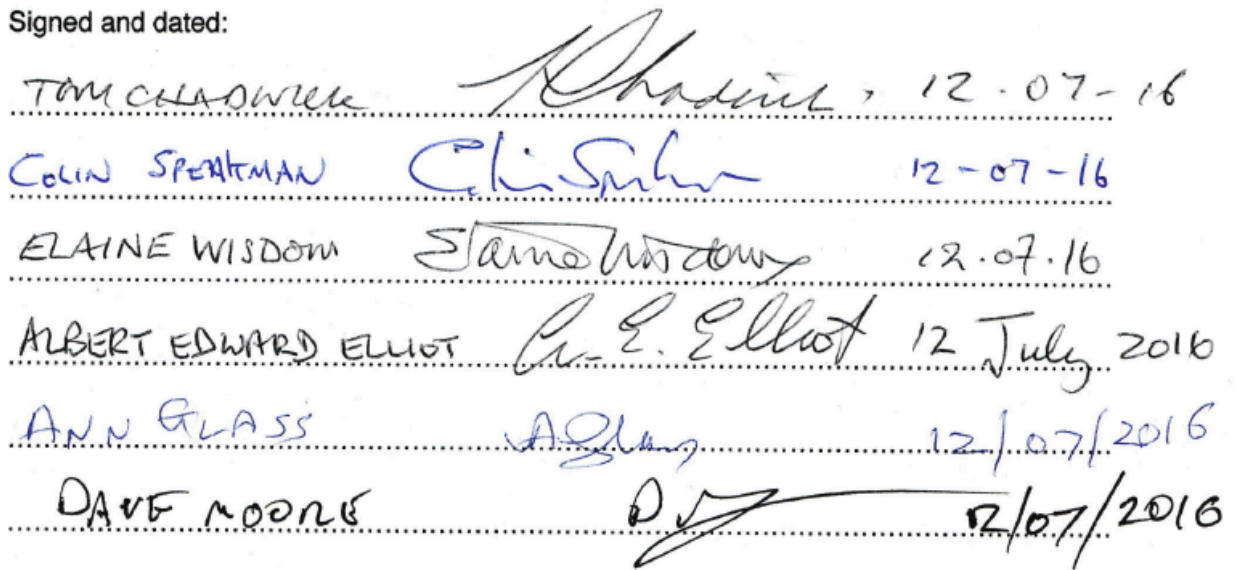 Signed and dated:
TOM CHADWICK TChadwick, 12.07-16
COLIN SPEAKMAN Colin Speakman 12-07-16
ELAINE WISDOM Elaine Wisdom 12.07.16
ALBERT EDWARD ELLIOT A. E. Elliot 12 July 2016
ANN GLASS AGlass 12/07/2016
DAVE MOORE D 12/07/2016